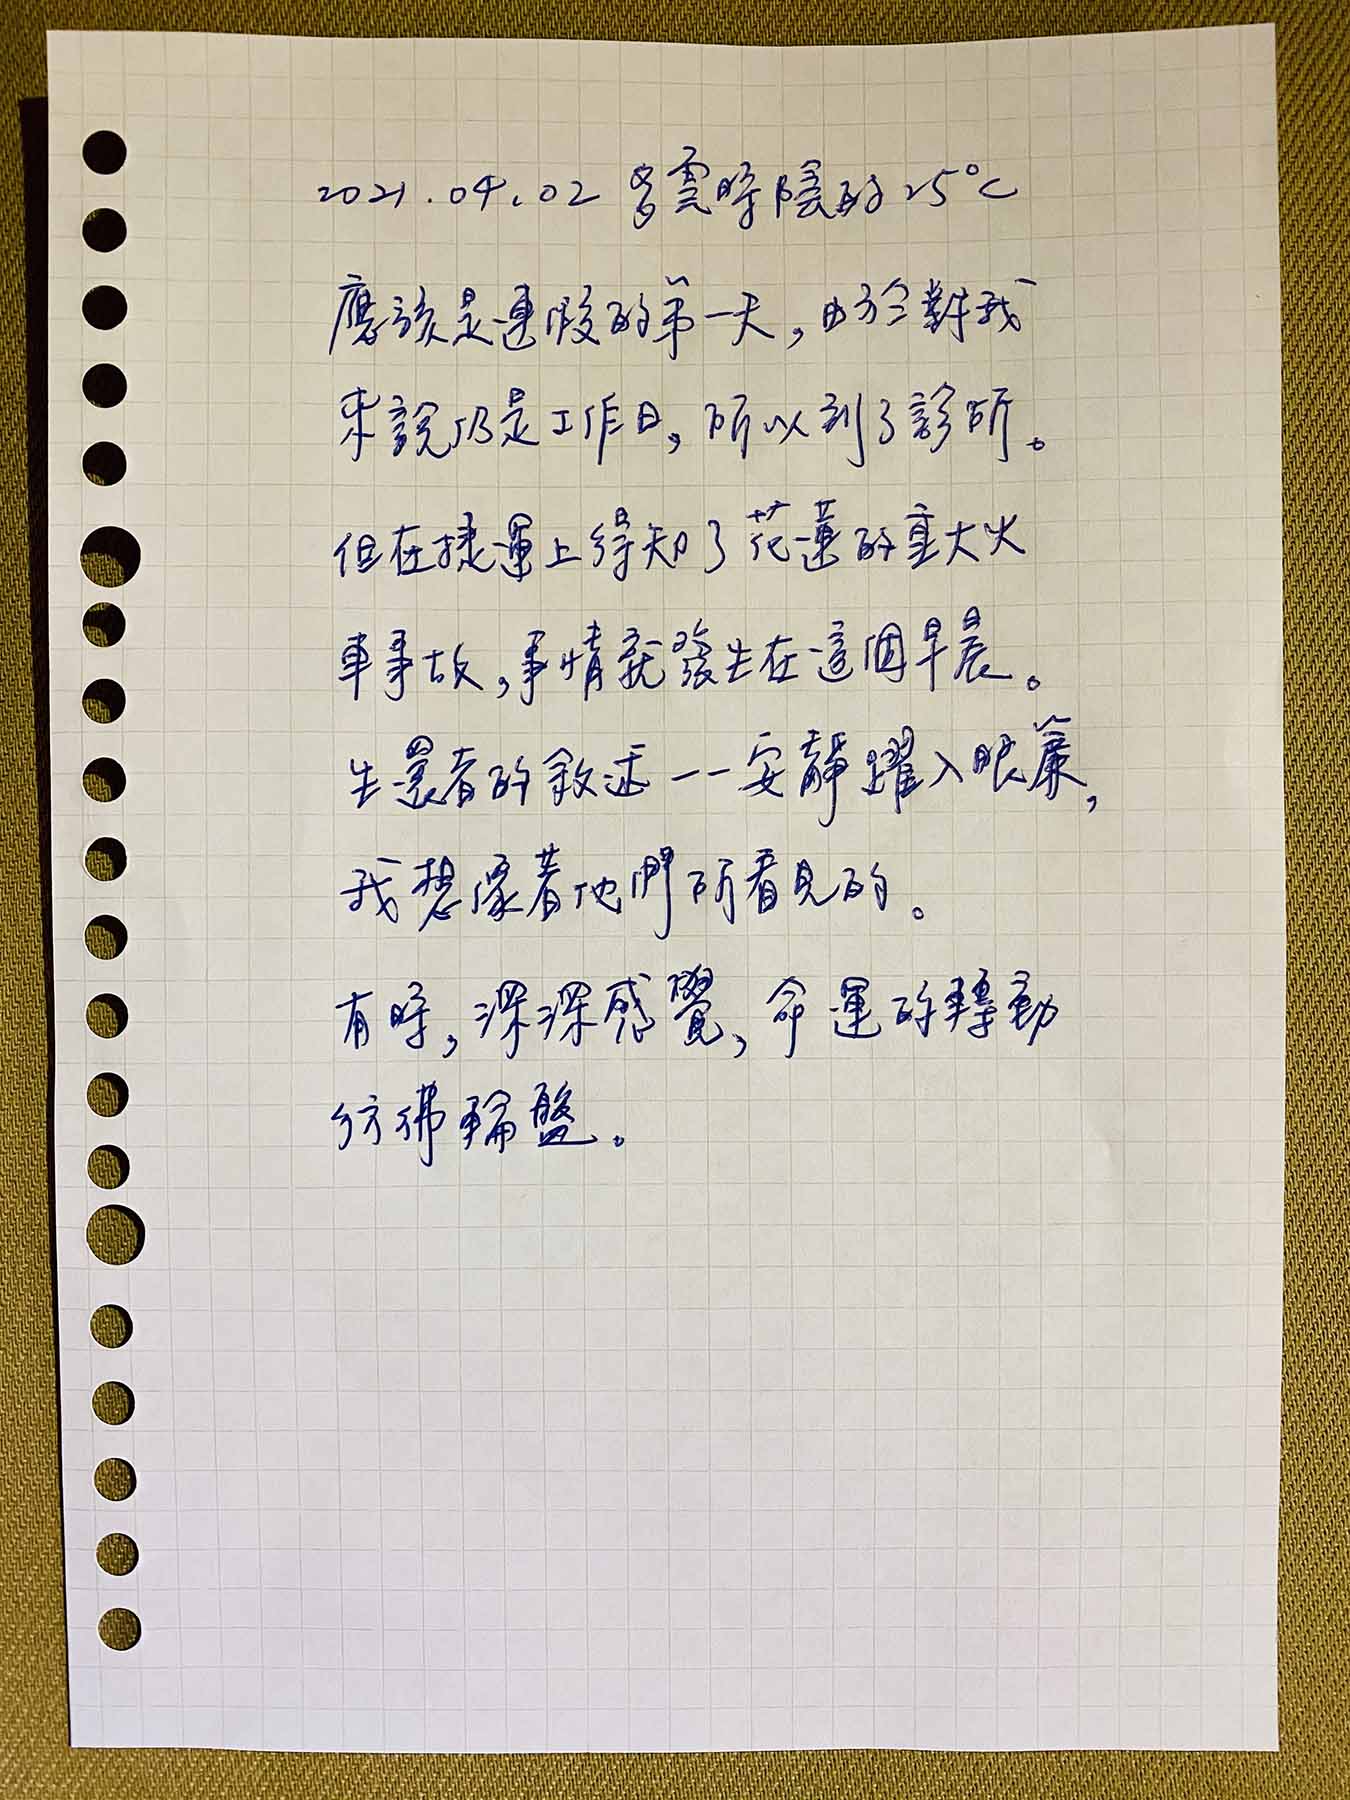 2021.04.02 多雲時陰的25°C
應該是連假的第一天,由於對我
來說仍是工作日,所以到了診所。
但在捷運上得知了花蓮的重大火
車事故,事情就發生在這個早晨。
生還者的敘述一一安靜躍入眼簾,
我想像著他們所看見的。
有時,深深感覺,命運的轉動
彷彿輪盤。